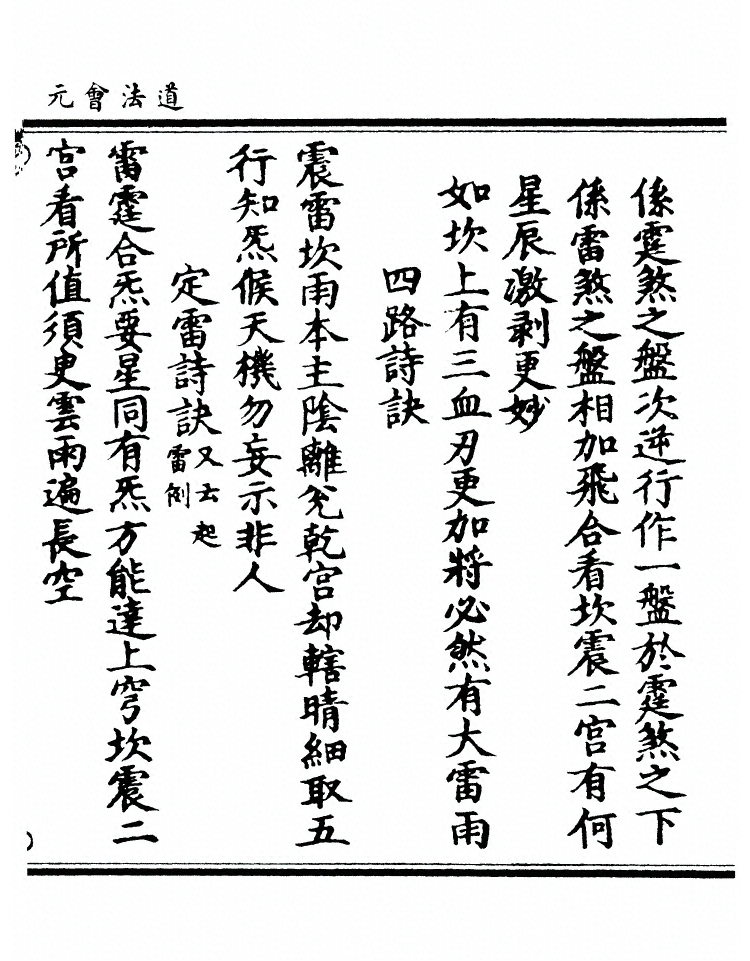 道法會元
係霆煞之盤次逆行作一盤於霆煞之下
係雷煞之盤相加飛合看坎震二宮有何
星辰激剥更妙
如坎上有三血刃更加將必然有大雷雨
四路詩訣
震雷坎雨本主陰離兊乾宮却轄晴細取五
行知炁候天機勿妄示非人
定雷詩訣又云起雷例
雷霆合炁要星同有炁方能達上穹坎震二
宮看所值須臾雲雨遍長空